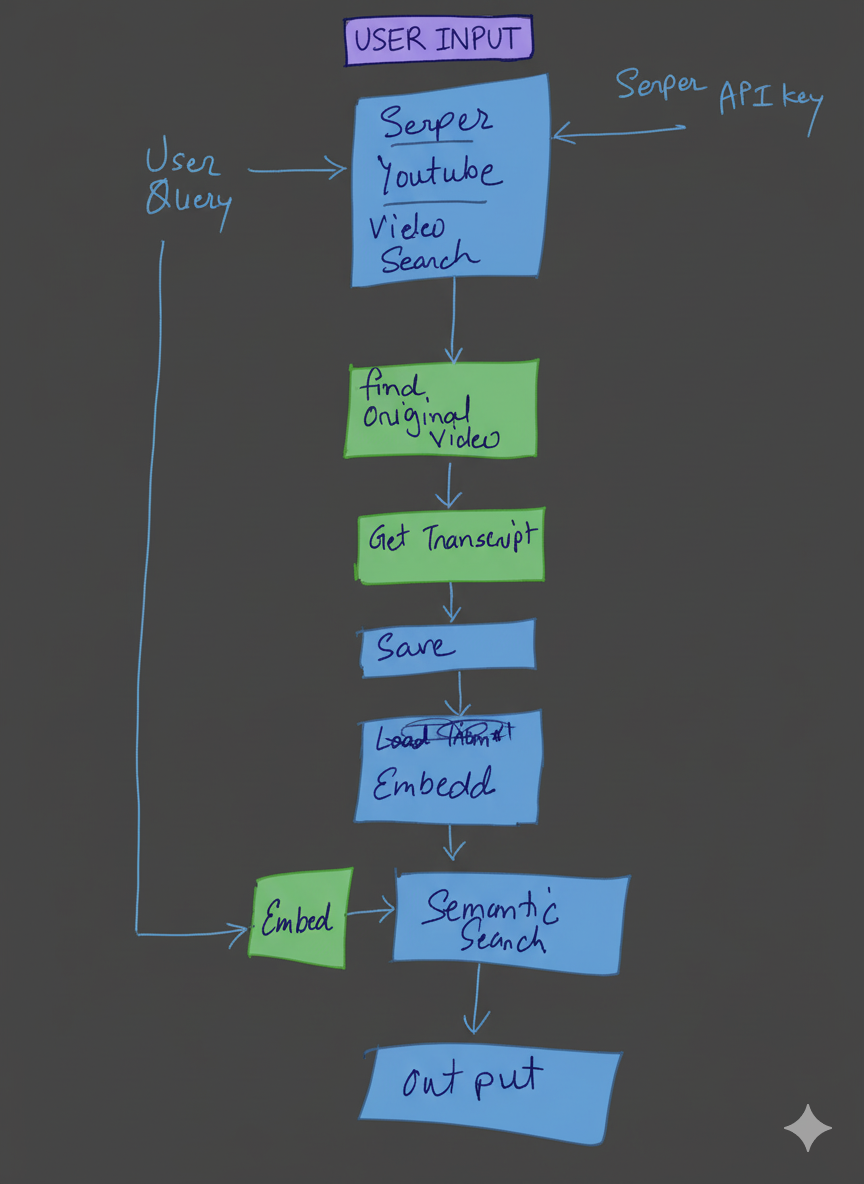 USER INPUT
Serper API key
Serper
Youtube
Video
Search
User
Query
find
Original
Video
Get Transcript
Save
Load
Embedd
Embed
Semantic
Search
Output